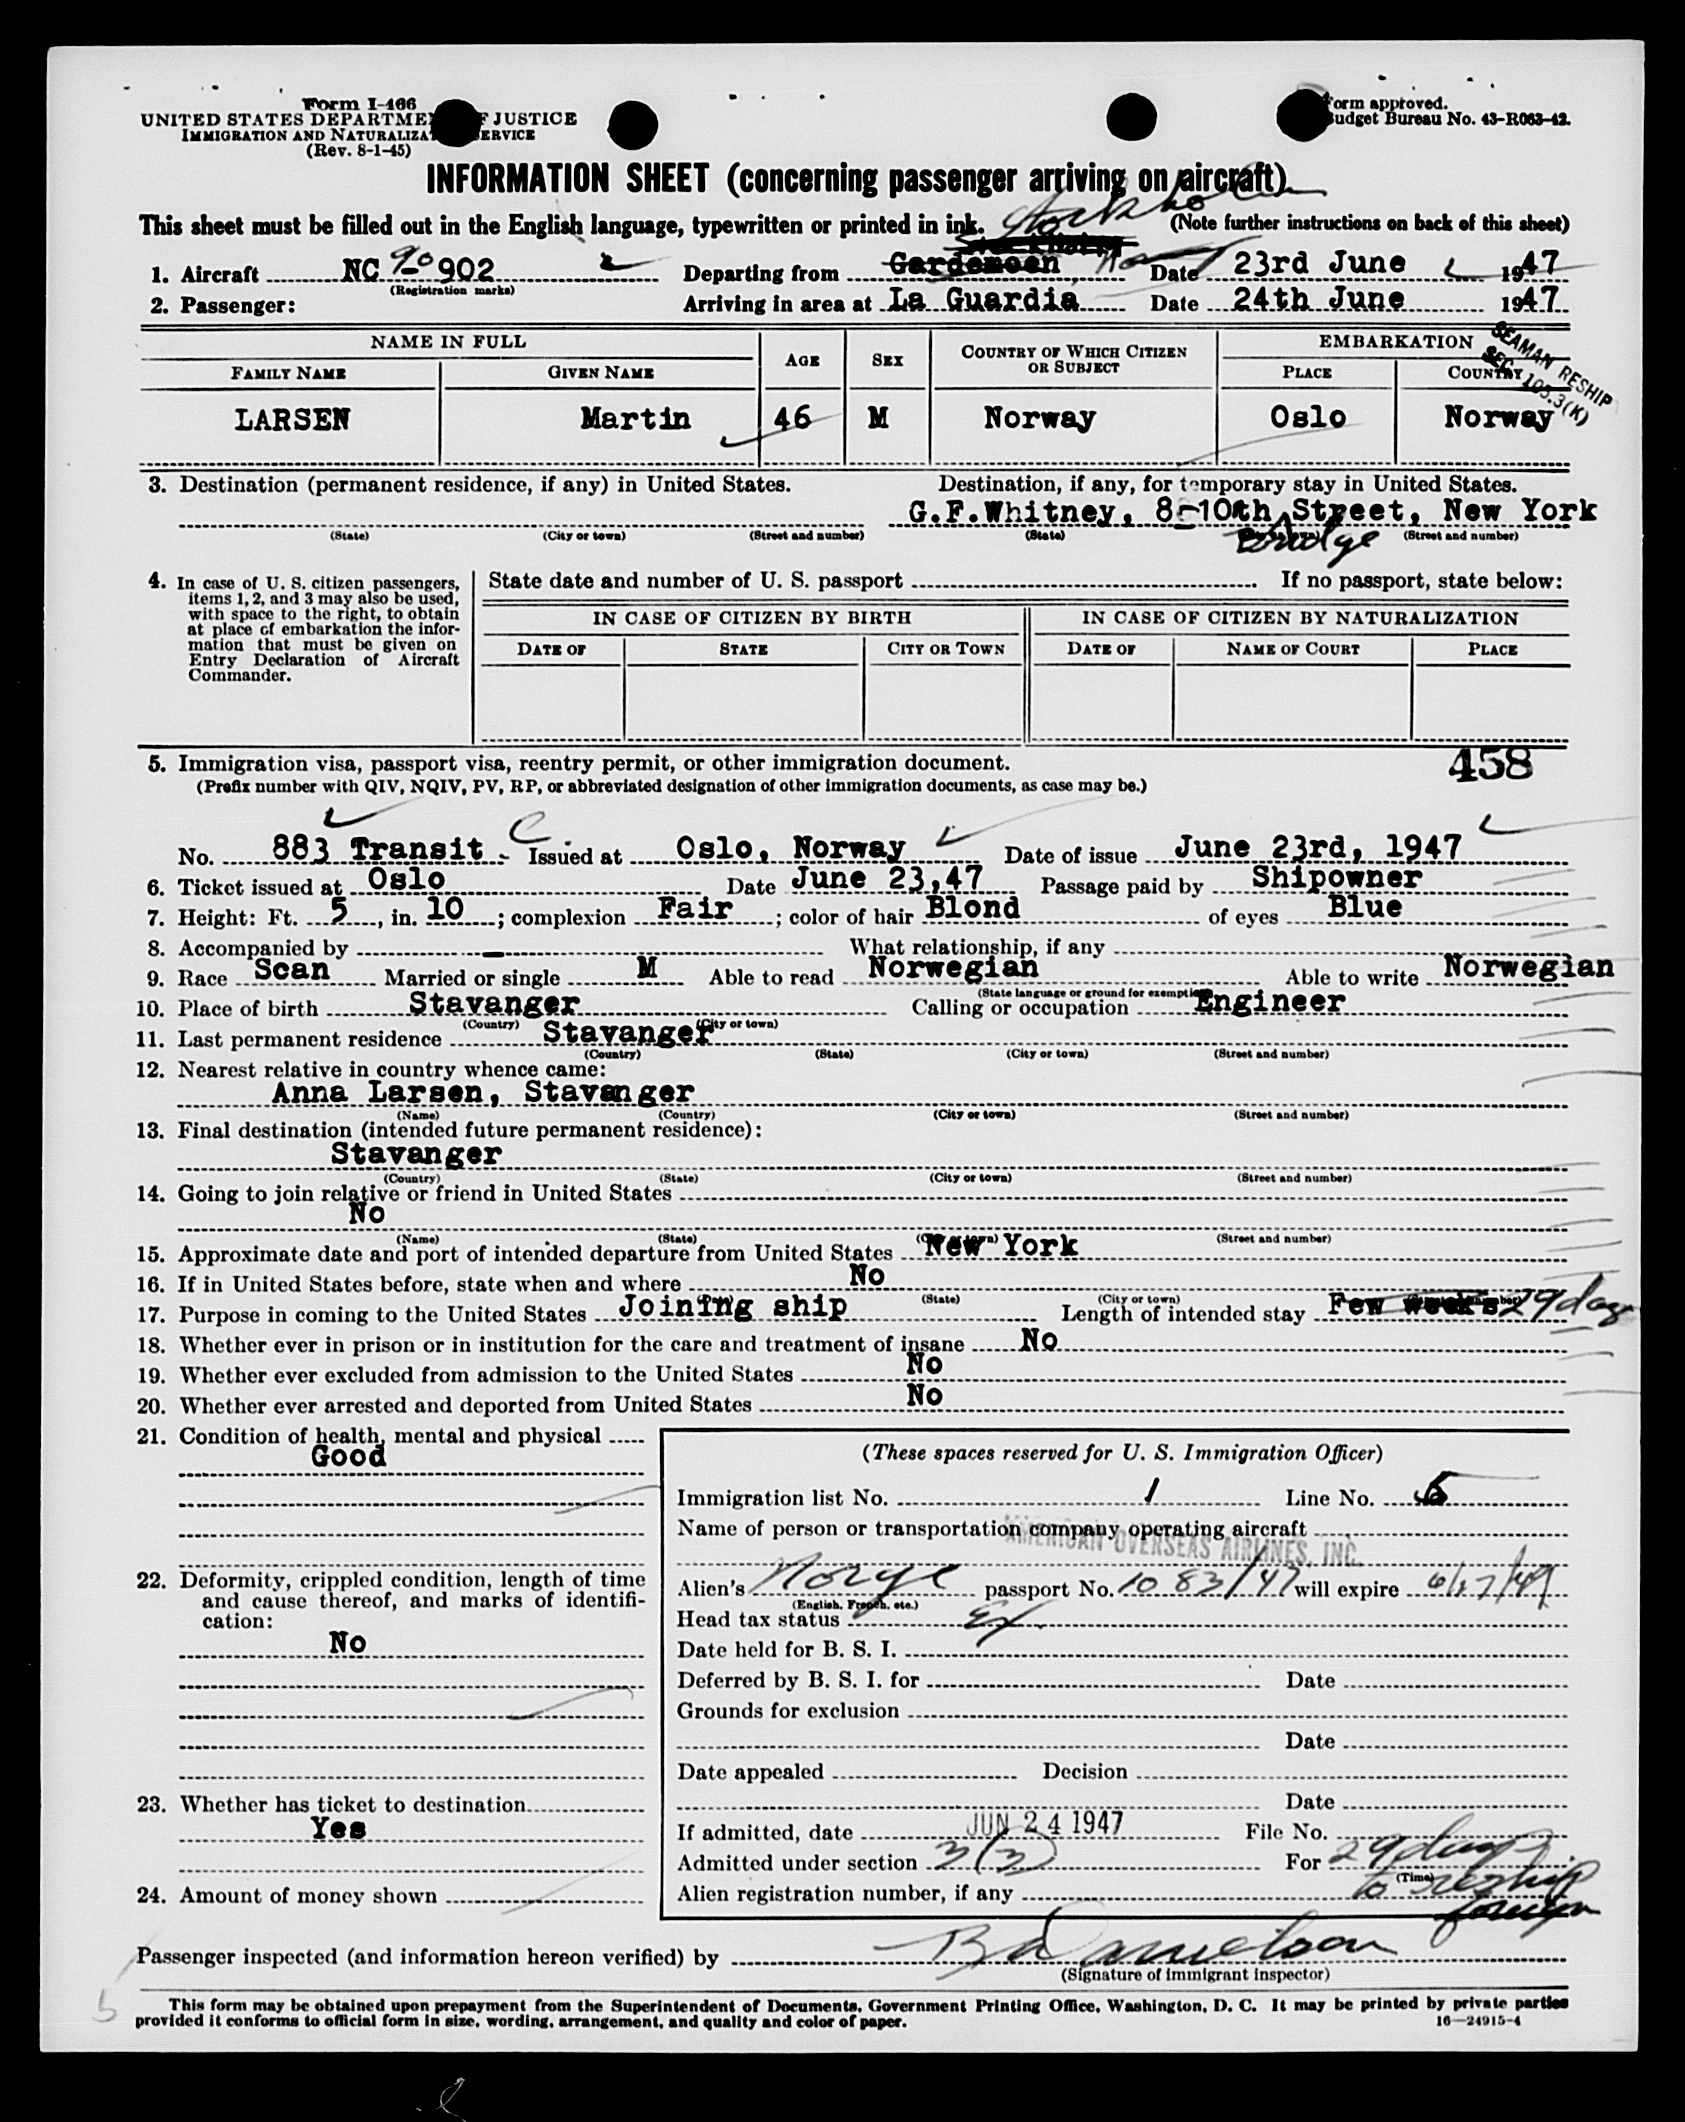 Form I-466
UNITED STATES DEPARTMENT OF JUSTICE
IMMIGRATION AND NATURALIZATION SERVICE
(Rev. 8-1-45)
Form approved.
Budget Bureau No. 43-R063-42.
INFORMATION SHEET (concerning passenger arriving on aircraft)
This sheet must be filled out in the English language, typewritten or printed in ink. Stockholm (Note further instructions on back of this sheet)
1. Aircraft NC 90902 Departing from Gardemoen Date 23rd June 1947
(Registration marks)
2. Passenger: Arriving in area at La Guardia Date 24th June 1947
NAME IN FULL AGE SEX COUNTRY OF WHICH CITIZEN OR SUBJECT EMBARKATION
FAMILY NAME GIVEN NAME PLACE COUNTRY
SEAMAN RESHIP
SEC 105.3(K)
LARSEN Martin 46 M Norway Oslo Norway
3. Destination (permanent residence, if any) in United States. Destination, if any, for temporary stay in United States.
G.F.Whitney, 8-10th Street, New York
(State) (City or town) (Street and number) (State) Bridge (Street and number)
4. In case of U. S. citizen passengers, items 1, 2, and 3 may also be used, with space to the right, to obtain at place of embarkation the information that must be given on Entry Declaration of Aircraft Commander.
State date and number of U. S. passport If no passport, state below:
IN CASE OF CITIZEN BY BIRTH IN CASE OF CITIZEN BY NATURALIZATION
DATE OF STATE CITY OR TOWN DATE OF NAME OF COURT PLACE
5. Immigration visa, passport visa, reentry permit, or other immigration document. 458
(Prefix number with QIV, NQIV, PV, RP, or abbreviated designation of other immigration documents, as case may be.)
No. 883 Transit C Issued at Oslo, Norway Date of issue June 23rd, 1947
6. Ticket issued at Oslo Date June 23,47 Passage paid by Shipowner
7. Height: Ft. 5, in. 10; complexion Fair; color of hair Blond of eyes Blue
8. Accompanied by - What relationship, if any
9. Race Scan Married or single M Able to read Norwegian Able to write Norwegian
(State language or ground for exemption)
10. Place of birth Stavanger Calling or occupation Engineer
(Country) (City or town)
11. Last permanent residence Stavanger
(Country) (State) (City or town) (Street and number)
12. Nearest relative in country whence came:
Anna Larsen, Stavanger
(Name) (Country) (City or town) (Street and number)
13. Final destination (intended future permanent residence):
Stavanger
(Country) (State) (City or town) (Street and number)
14. Going to join relative or friend in United States
No
(Name) (State) (City or town) (Street and number)
15. Approximate date and port of intended departure from United States New York
16. If in United States before, state when and where No
(State) (City or town)
17. Purpose in coming to the United States Joining ship Length of intended stay Few weeks 29 days
18. Whether ever in prison or in institution for the care and treatment of insane No
19. Whether ever excluded from admission to the United States No
20. Whether ever arrested and deported from United States No
21. Condition of health, mental and physical
Good
(These spaces reserved for U. S. Immigration Officer)
Immigration list No. 1 Line No. 5
Name of person or transportation company operating aircraft
AMERICAN OVERSEAS AIRLINES, INC.
22. Deformity, crippled condition, length of time and cause thereof, and marks of identification:
No
Alien's Norge passport No. 1083/47 will expire 6/17/49
(English, French, etc.)
Head tax status Ex
Date held for B. S. I.
Deferred by B. S. I. for Date
Grounds for exclusion
Date
Date appealed Decision
23. Whether has ticket to destination
Yes
Date
If admitted, date JUN 24 1947 File No.
Admitted under section 3(3) For 29 days
(Time)
to reship
foreign
24. Amount of money shown
Alien registration number, if any
Passenger inspected (and information hereon verified) by
(Signature of immigrant inspector)
5
This form may be obtained upon prepayment from the Superintendent of Documents, Government Printing Office, Washington, D. C. It may be printed by private parties
provided it conforms to official form in size, wording, arrangement, and quality and color of paper. 16—24915-4